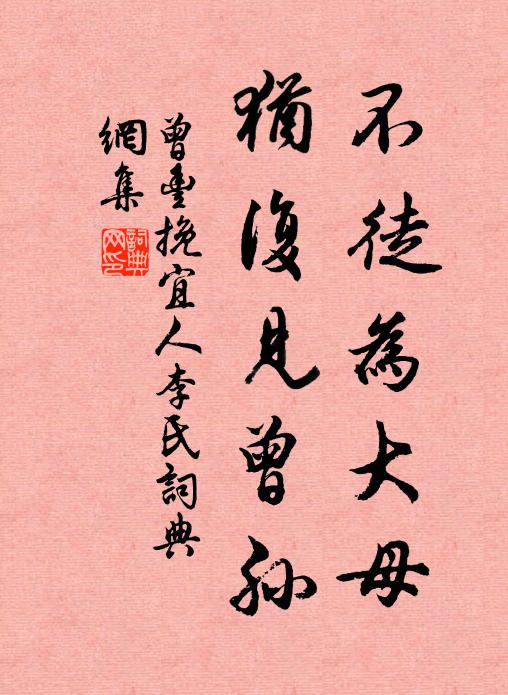 不徒為大母
猶復見曾孫
曾豐挽宜人李氏詞典
網集
詞典網印